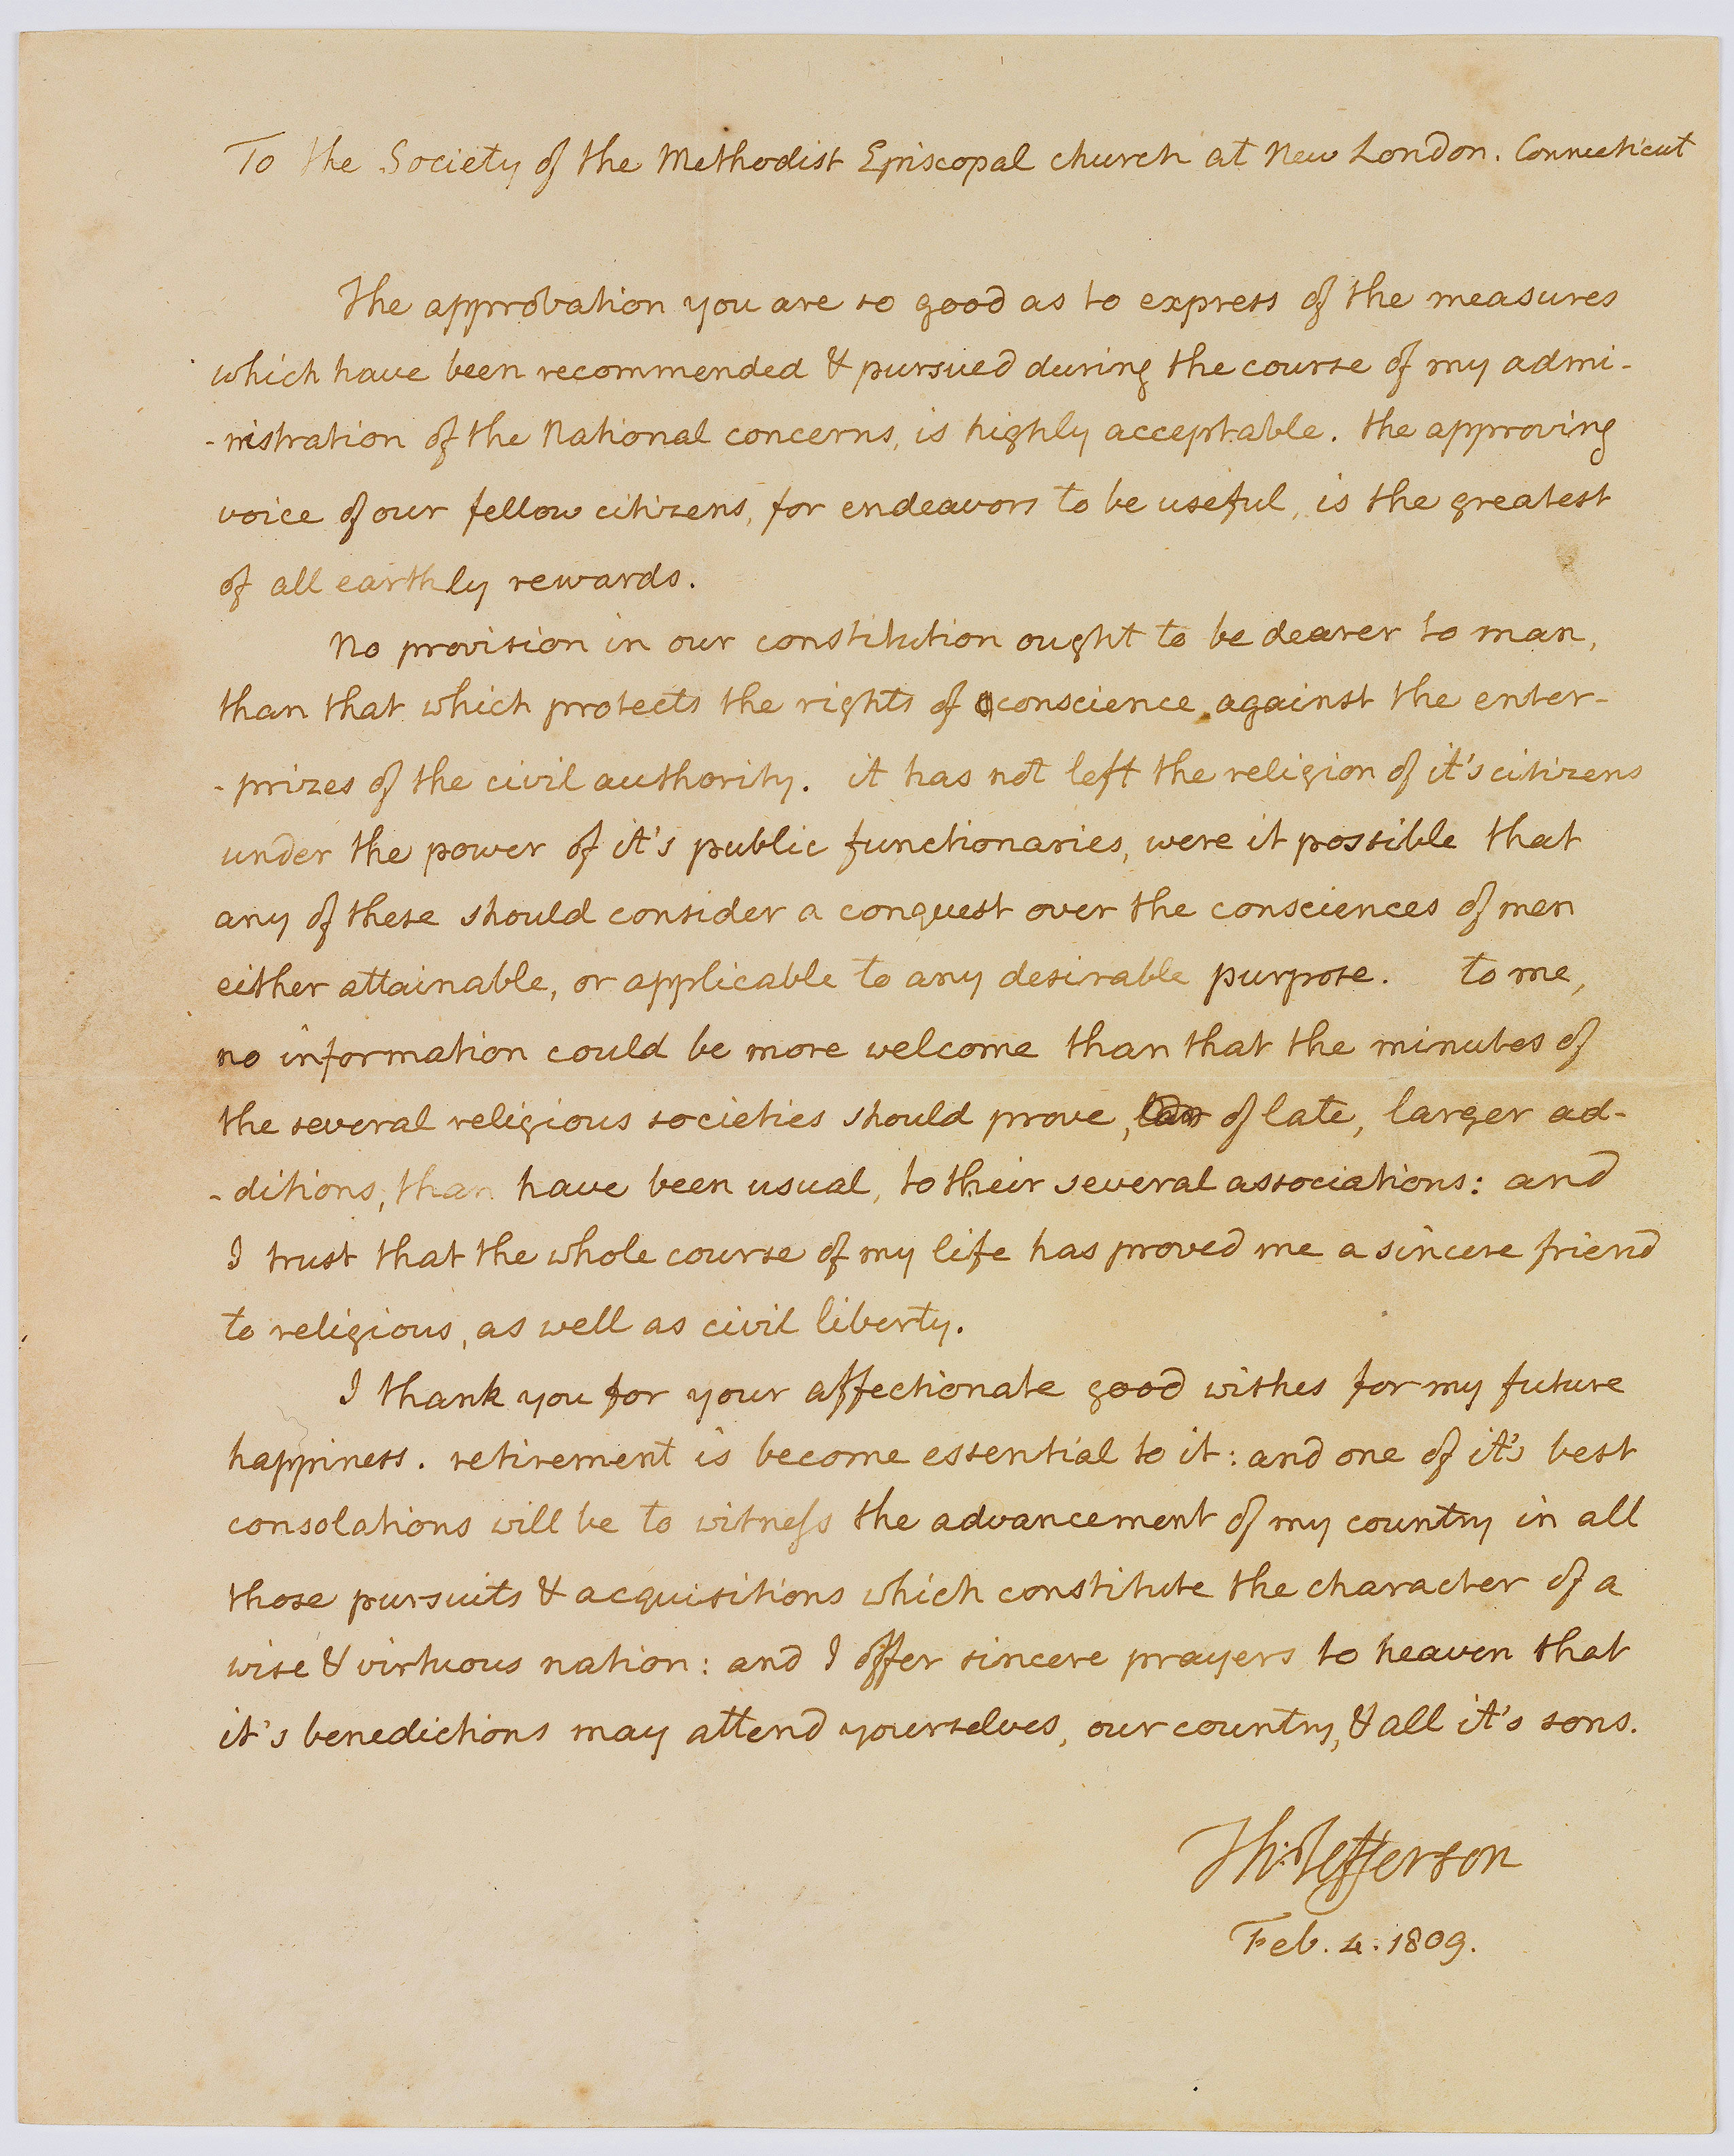 To the Society of the Methodist Episcopal church at New London. Connecticut
The approbation you are so good as to express of the measures
which have been recommended & pursued during the course of my admi-
-nistration of the National concerns, is highly acceptable. the approving
voice of our fellow citizens, for endeavors to be useful, is the greatest
of all earthly rewards.
No provision in our constitution ought to be dearer to man,
than that which protects the rights of conscience against the enter-
-prizes of the civil authority. it has not left the religion of it's citizens
under the power of it's public functionaries, were it possible that
any of these should consider a conquest over the consciences of men
either attainable, or applicable to any desirable purpose. to me,
no information could be more welcome than that the minutes of
the several religious societies should prove, of late, larger ad-
-ditions, than have been usual, to their several associations: and
I trust that the whole course of my life has proved me a sincere friend
to religious, as well as civil liberty.
I thank you for your affectionate good wishes for my future
happiness. retirement is become essential to it: and one of it's best
consolations will be to witness the advancement of my country in all
those pursuits & acquisitions which constitute the character of a
wise & virtuous nation: and I offer sincere prayers to heaven that
it's benedictions may attend yourselves, our country, & all it's sons.
Th: Jefferson
Feb. 4. 1809.